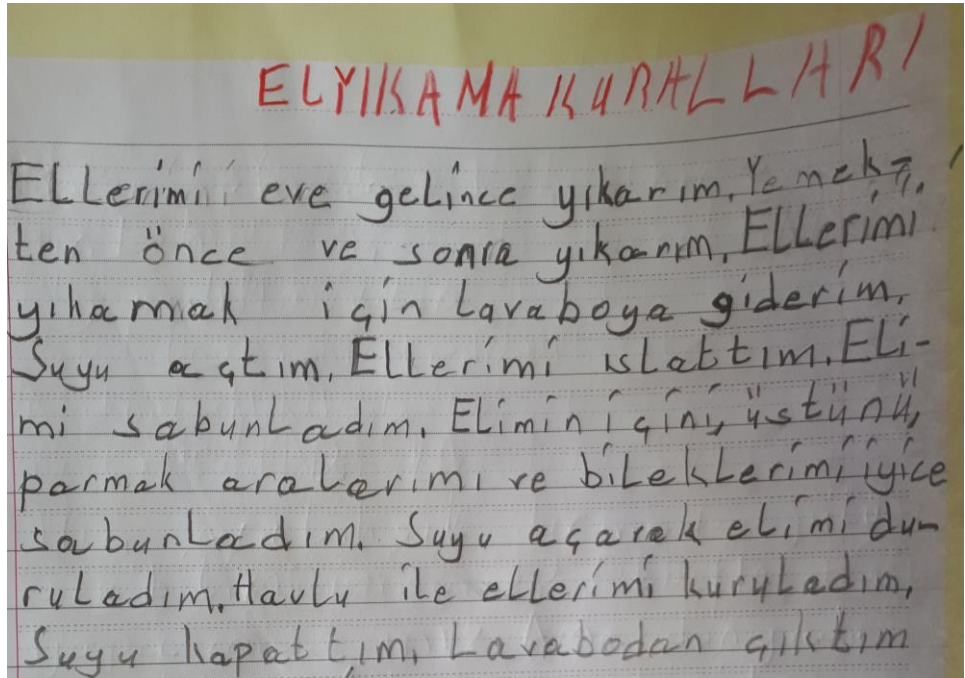 ELYIKAMA KURALLARI
Ellerimi eve gelince yıkarım. Yemek-
ten önce ve sonra yıkarım. Ellerimi
yıkamak için lavaboya giderim.
Suyu açtım. Ellerimi ıslattım. Eli-
mi sabunladım. Elimin içini, üstünü,
parmak aralarımı ve bileklerimi iyice
sabunladım. Suyu açarak elimi du-
ruladım. Havlu ile ellerimi kuruladım.
Suyu kapattım. Lavabodan çıktım